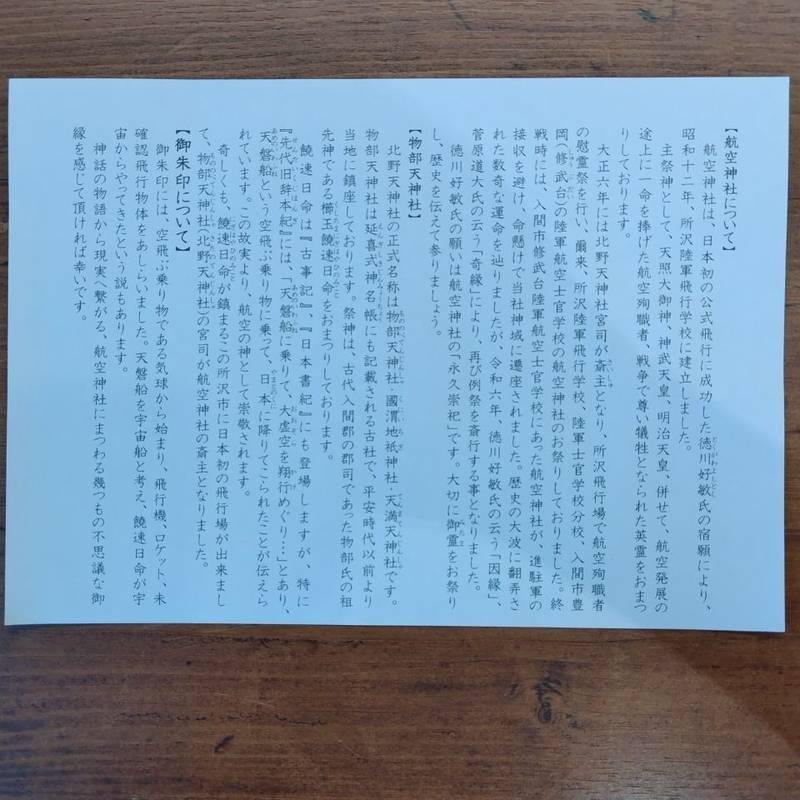 【航空神社について】
航空神社は、日本初の公式飛行に成功した徳川好敏氏の宿願により、
昭和十二年、所沢陸軍飛行学校に建立しました。
主祭神として、天照大御神、神武天皇、明治天皇、併せて、航空発展の
途上に一命を捧げた航空殉職者、戦争で尊い犠牲となられた英霊をおまつ
りしております。
大正六年には北野天神社宮司が斎主となり、所沢飛行場で航空殉職者
の慰霊祭を行い、爾来、所沢陸軍飛行学校、陸軍士官学校分校、入間市豊
岡（修武台）の陸軍航空士官学校の航空神社のお祭りしておりました。終
戦時には、入間市修武台陸軍航空士官学校にあった航空神社が、進駐軍の
接収を避け、命懸けで当社神域に遷座されました。歴史の大波に翻弄さ
れた数奇な運命を辿りましたが、令和六年、徳川好敏氏の云う「因縁」、
菅原道大氏の云う「奇縁」により、再び例祭を斎行する事となりました。
徳川好敏氏の願いは航空神社の「永久崇祀」です。大切に御霊をお祭り
し、歴史を伝えて参りましょう。
【物部天神社】
北野天神社の正式名称は物部天神社・國渭地祇神社・天満天神社です。
物部天神社は延喜式神名帳にも記載される古社で、平安時代以前より
当地に鎮座しております。祭神は、古代入間郡の郡司であった物部氏の祖
先神である櫛玉饒速日命をおまつりしております。
饒速日命は『古事記』、『日本書紀』にも登場しますが、特に
『先代旧辞本紀』には、「天磐船に乗りて、大虚空を翔行めぐり…」とあり、
天磐船という空飛ぶ乗り物に乗って、日本に降りてこられたことが伝えら
れています。この故実より、航空の神として崇敬されます。
奇しくも、饒速日命が鎮まるこの所沢市に日本初の飛行場が出来まし
て、物部天神社（北野天神社）の宮司が航空神社の斎主となりました。
【御朱印について】
御朱印には、空飛ぶ乗り物である気球から始まり、飛行機、ロケット、未
確認飛行物体をあしらいました。天磐船を宇宙船と考え、饒速日命が宇
宙からやってきたという説もあります。
神話の物語から現実へ繋がる、航空神社にまつわる幾つもの不思議な御
縁を感じて頂ければ幸いです。